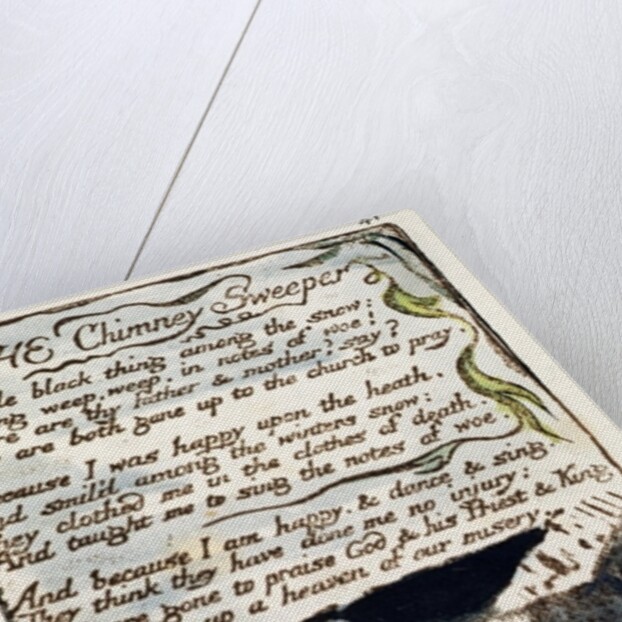 HE Chimney Sweeper
black thing among the snow:
weep, weep, in notes of woe!
are thy father & mother? say?
are both gone up to the church to pray
Because I was happy upon the heath.
And smil'd among the winters snow:
They clothed me in the clothes of death.
And taught me to sing the notes of woe
And because I am happy. & dance & sing.
They think they have done me no injury:
gone to praise God & his Priest & King
up a heaven of our misery